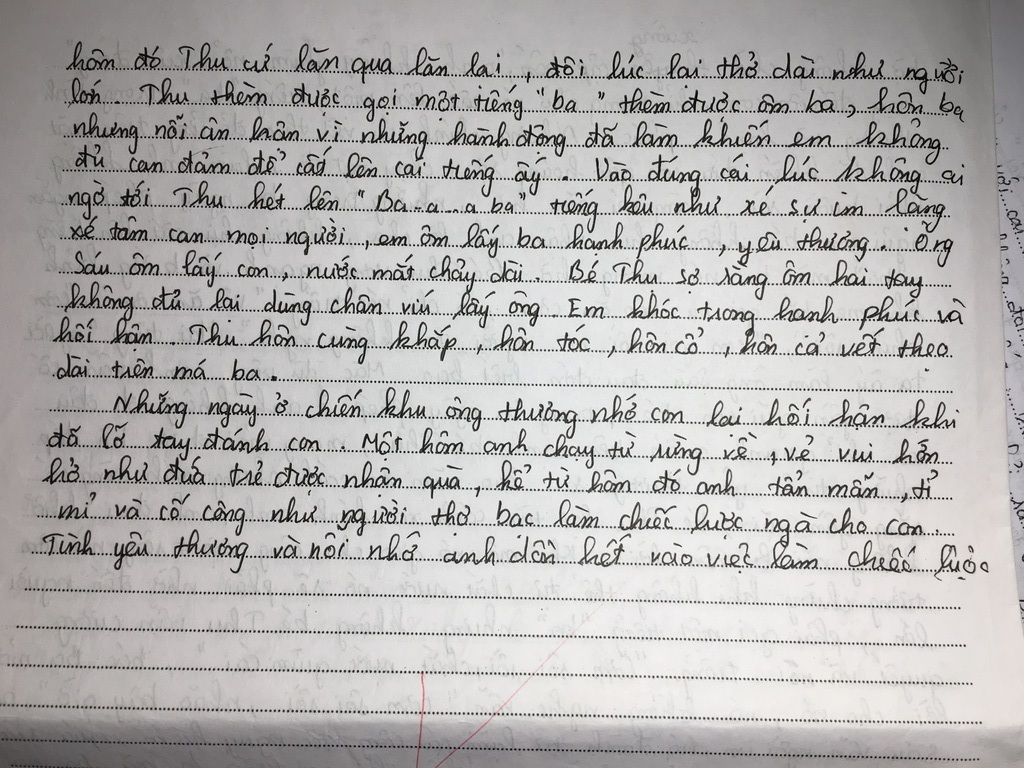 hôm đó Thu cứ lăn qua lăn lai, đôi lúc lại thở dài như người
lớn. Thu thèm được gọi một tiếng "ba" thèm được ôm ba, hôn ba
nhưng nỗi ân hận vì những hành động đã làm khiến em không
đủ can đảm để cất lên cai tiếng ấy. Vào đúng cái lúc không ai
ngờ tới Thu hét lên "Ba..a..a ba" tiếng kêu như xé sự im lặng
xé tâm can mọi người, em ôm lấy ba hanh phúc, yêu thương. Ông
Sáu ôm lấy con, nước mắt chảy dài. Bé Thu sợ rằng ôm hai tay
không đủ lai dùng chân víu lấy ông. Em khóc trong hanh phuc và
hối hận. Thu hôn cùng khắp, hôn tóc, hôn cổ, hôn cả vết thẹo
dài trên má ba.
Những ngày ở chiến khu ông thương nhớ con lại hối hận khi
đã lỡ tay đánh con. Một hôm anh chạy từ rừng về, vẻ vui hớn
hở như đứa trẻ được nhận quà, kể từ hôm đó anh tẩn mẩn, tỉ
mỉ và cố công như người thợ bạc làm chiếc lược ngà cho con.
Tình yêu thương và nỗi nhớ anh dồn hết vào việc làm chiếc lược